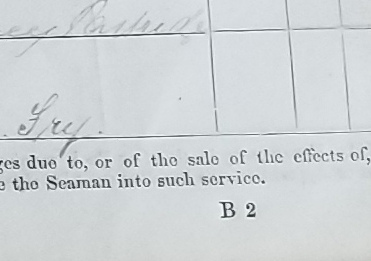 Fry.
ges due to, or of the sale of the effects of,
e the Seaman into such service.
B 2